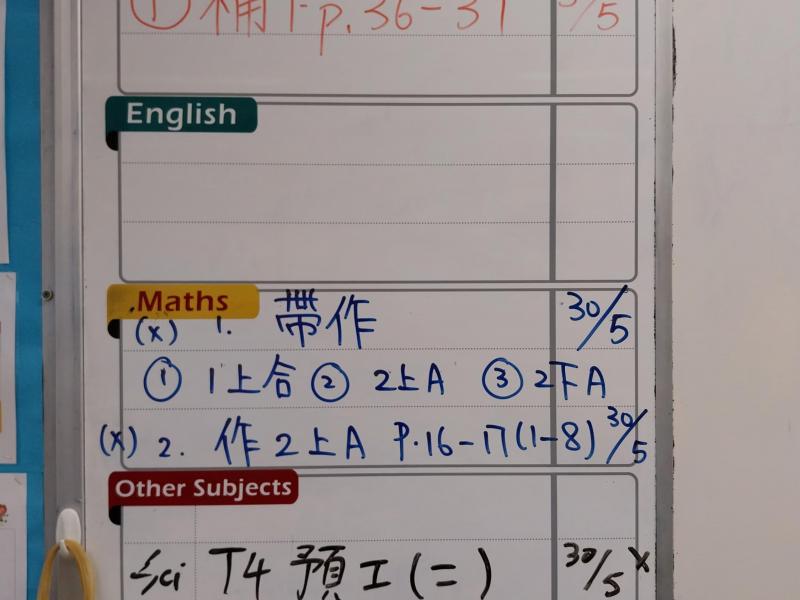 ① 補下 p.36-37 30/5
English
Maths
(x) 1. 帶作 30/5
① 1上合 ② 2上A ③ 2下A
(x) 2. 作2上A P.16-17(1-8) 30/5
Other Subjects
Sci T4 預工(二) 30/5 x